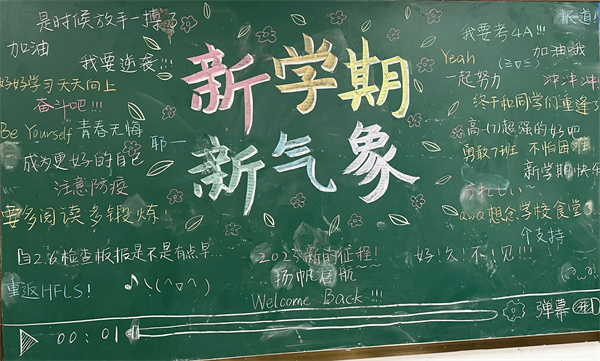 是时候放手一搏了
加油
我要逆袭!!!
好好学习天天向上
奋斗吧!!!
Be Yourself 青春无悔
耶一
成为更好的自己
注意防疫
要多阅读多锻炼
自2.6检查板报是不是有点早...
重返HFLS!
♪\(^▽^)/
新学期
新气象
2023新的征程!
扬帆启航
Welcome Back!!!
报道!
我要考4A!!!
Yeah
(≧▽≦)
加油哦
一起努力
冲冲冲
终于和同学们重逢了
高一(7)超强的好吧
勇敢7班 不怕困难
新学期快乐
awa想念学校食堂了
个支持
好!久!不!见!!!
00:01
弹幕 开